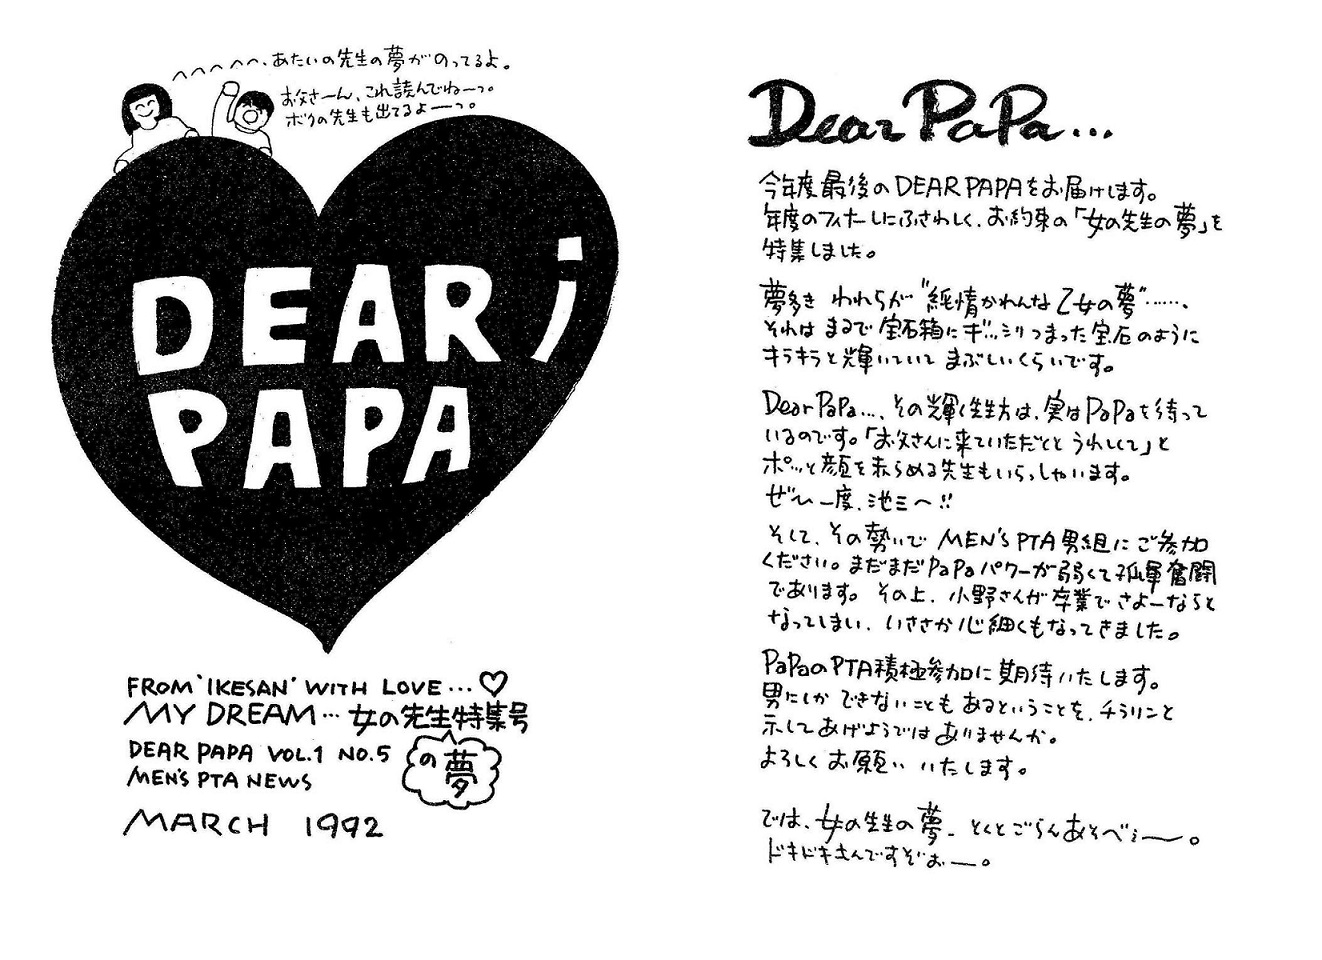 へへへへへ、あたいの先生の夢がのってるよ。
お父さーん、これ読んでねーっ。
ボクの先生も出てるよーっ。
DEAR i
PAPA
FROM 'IKESAN' WITH LOVE...♡
MY DREAM…女の先生特集号
の夢
DEAR PAPA VOL.1 NO.5
MEN'S PTA NEWS
MARCH 1992
Dear PaPa...
今年度最後のDEAR PAPAをお届けします。
年度のフィナーレにふさわしく、お約束の「女の先生の夢」を
特集しました。
夢多き われらが "純情かれんな乙女の夢"……、
それは まるで宝石箱にギッシリつまった宝石のように
キラキラと輝いていて まぶしいくらいです。
Dear PaPa...、その輝く先生方は、実はPaPaを待って
いるのです。「お父さんに来ていただくと うれしくて」と
ポッと顔を赤らめる先生もいらっしゃいます。
ぜひ一度、池三へ!!
そして、その勢いで MEN'S PTA男組にご参加
ください。まだまだPaPaパワーが弱くて孤軍奮闘
であります。その上、小野さんが卒業でさよーならと
なってしまい、いささか心細くもなってきました。
PaPaのPTA積極参加に期待いたします。
男にしか できないことも あるということを、チラリンと
示してあげようでは ありませんか。
よろしく お願い いたします。
では、女の先生の夢、とくとごらんあそべぇ〜〜。
ドキドキもんですぞぉー。